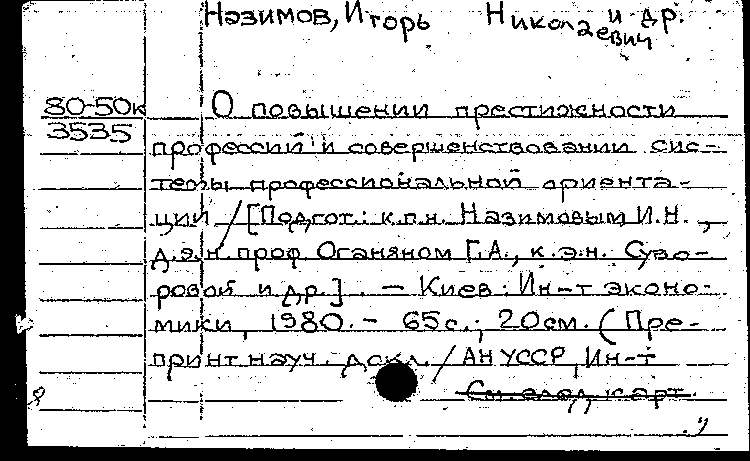 Назимов, Игорь Николаевич и др.
80-50к
3535
О повышении престижности
профессий и совершенствовании сис-
темы профессиональной ориента-
ции / [Подгот.: к.п.н. Назимовым И.Н.,
д.э.н. проф Оганяном Г.А., к.э.н. Суво-
ровой и др.]. – Киев: Ин-т эконо-
мики, 1980. – 65с.; 20см. (Пре-
принт науч. докл. / АН УССР, Ин-т
См. след. карт.